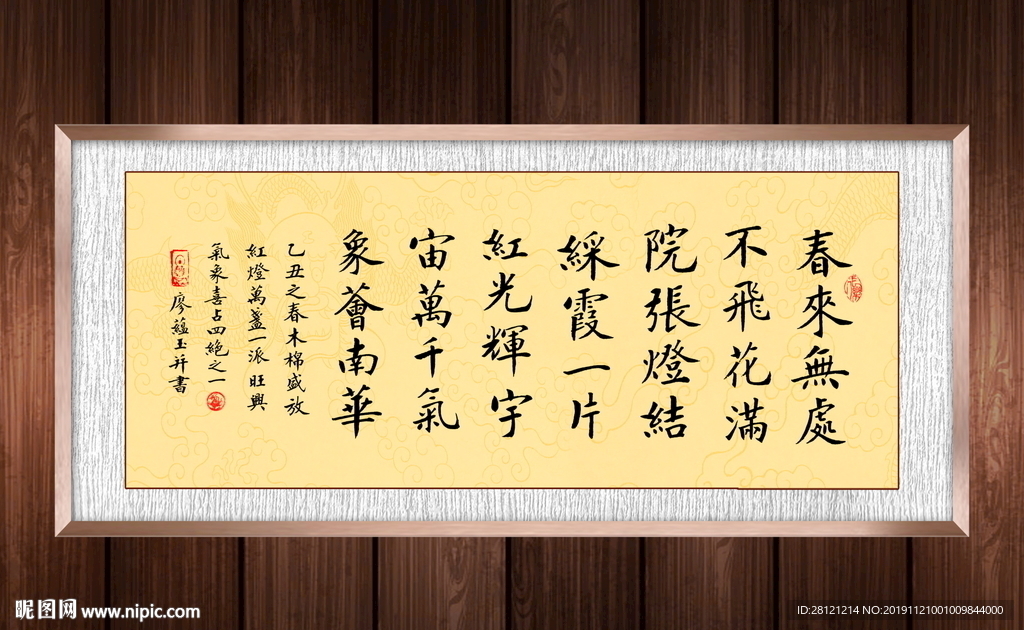 春來無處
不飛花滿
院張燈結
綵霞一片
紅光輝宇
宙萬千氣
象薈南華
乙丑之春木棉盛放
紅燈萬盞一派旺興
氣象喜占四絕之一
廖蘊玉并書
昵图网 www.nipic.com
ID:28121214 NO:20191121001009844000